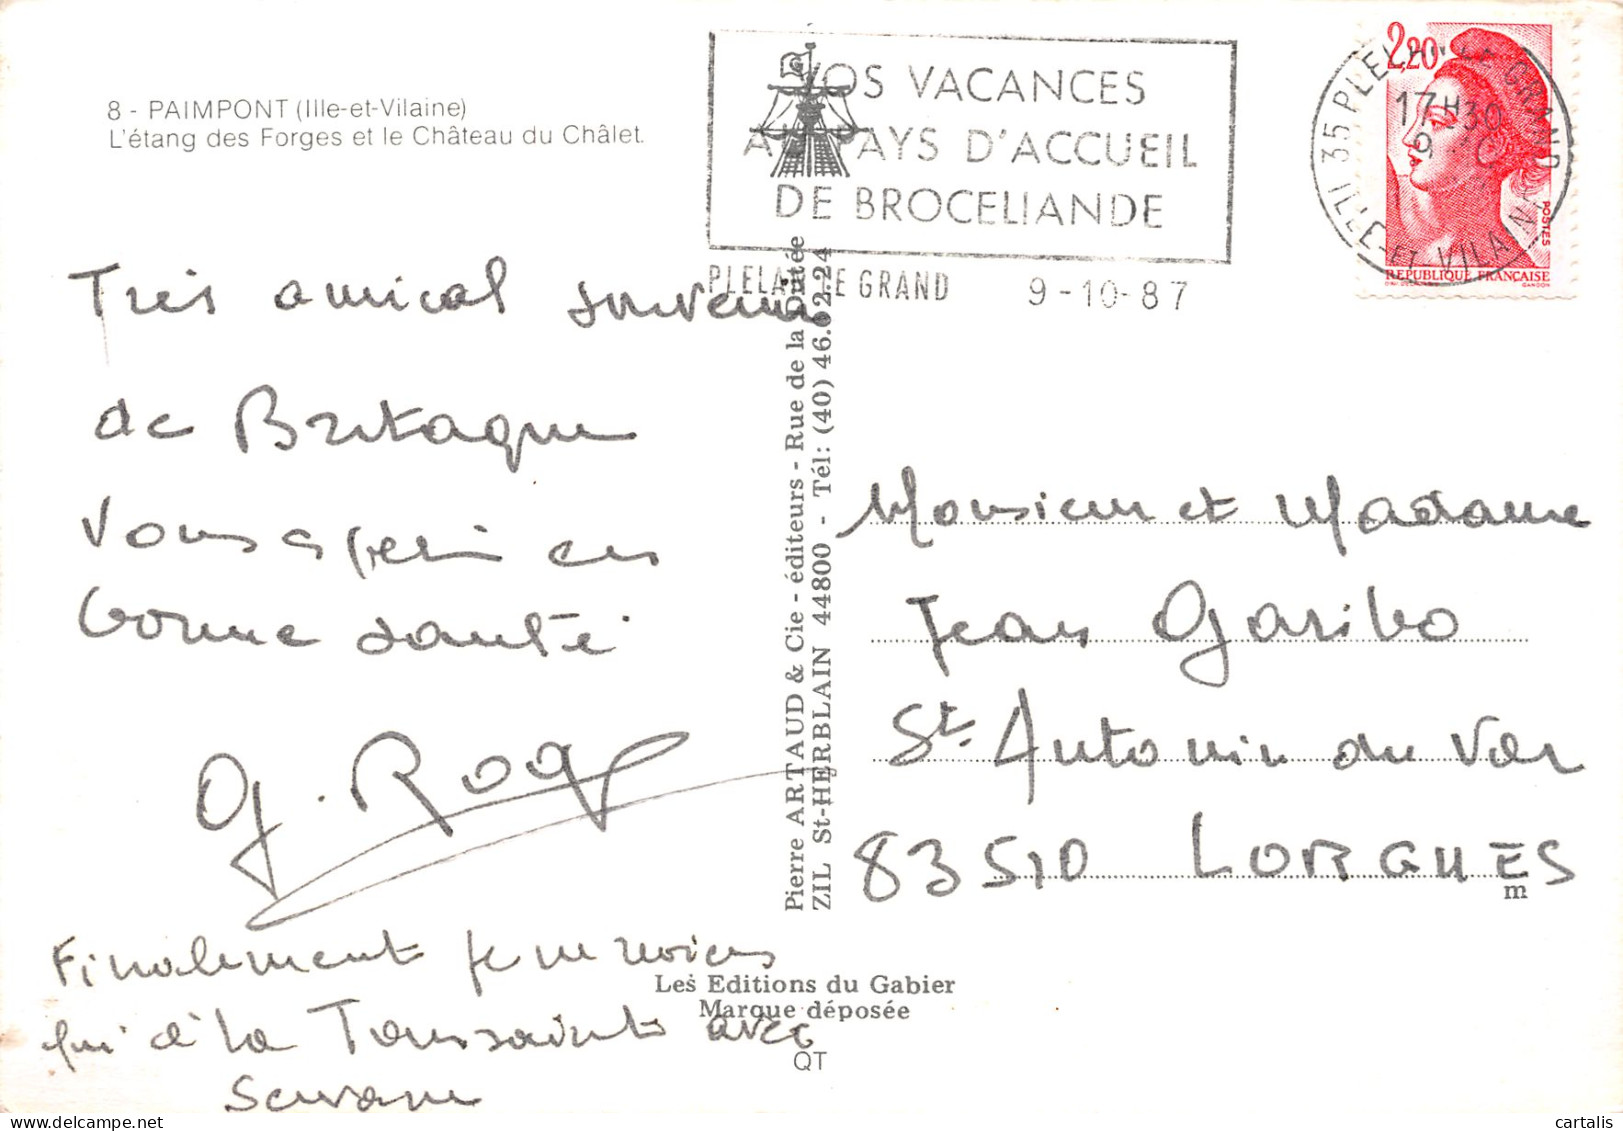 8 - PAIMPONT (Ille-et-Vilaine)
L'étang des Forges et le Château du Châlet.
VOS VACANCES
AU PAYS D'ACCUEIL
DE BROCELIANDE
PLELAN LE GRAND 9-10-87
35 PLELAN LE GRAND
ILLE-ET-VILAINE
17H30
9
2,20
POSTES
REPUBLIQUE FRANÇAISE
GANDON
Très amical souvenir
de Bretagne
Vous espérant en
bonne santé
G. Rog
Finalement je ne reviens
qu'à la Toussaint avec
Pierre ARTAUD & Cie - éditeurs - Rue de la
ZIL St-HERBLAIN 44800 - Tél: (40) 46.62.24
Monsieur et Madame
Jean Garibo
St. Antonin du Var
83510 LORGUES
m
Les Editions du Gabier
Marque déposée
QT
cartalis www.delcampe.net